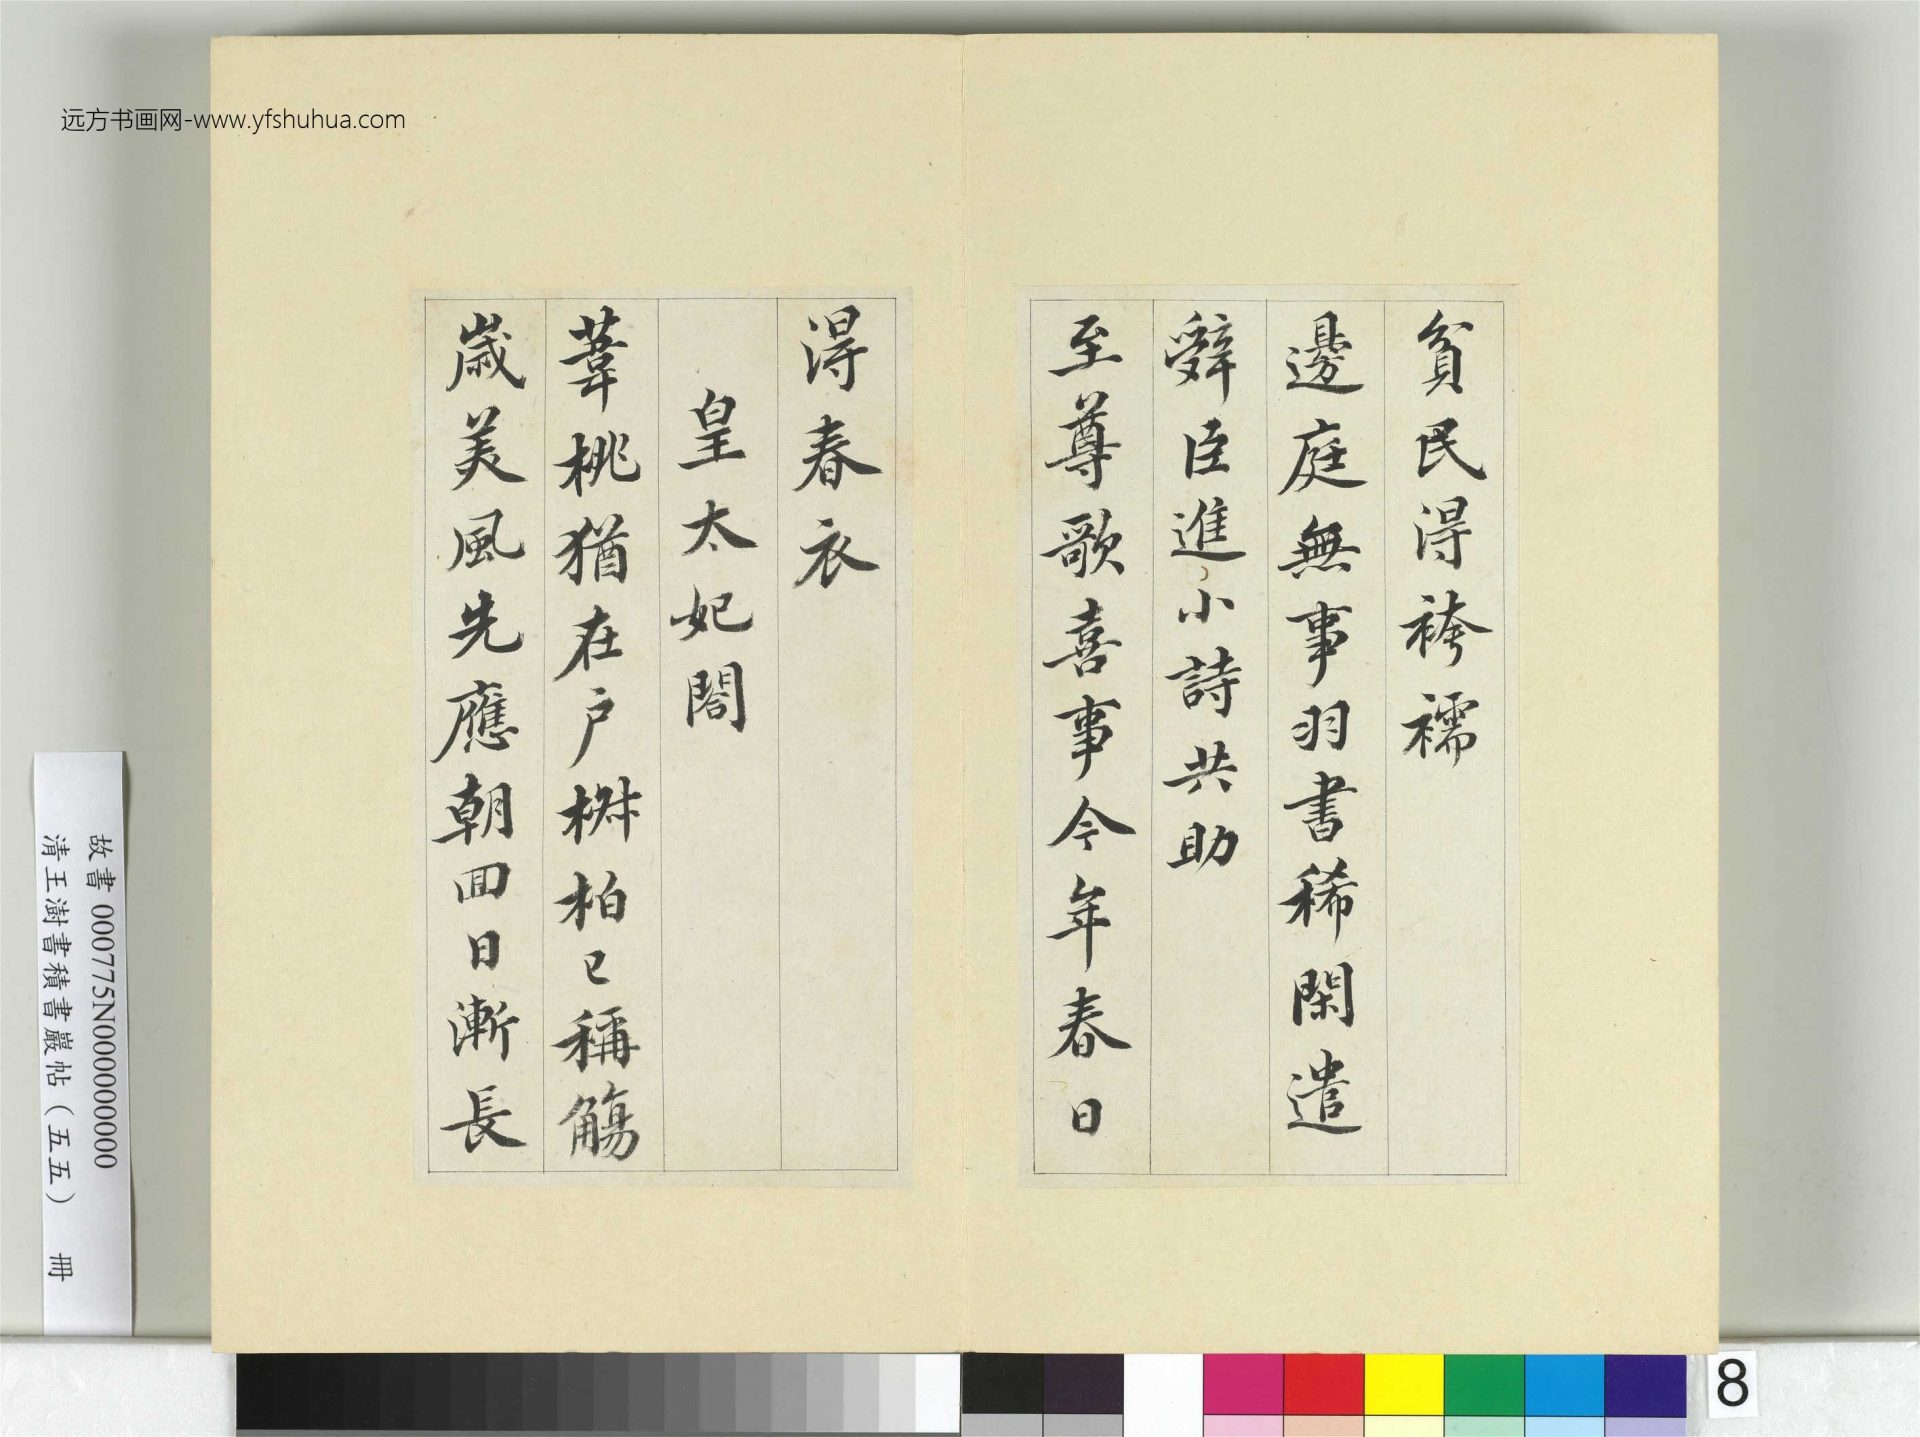 远方书画网-www.yfshuhua.com
貧民得袴襦
邊庭無事羽書稀閑遣
辤臣進小詩共助
至尊歌喜事今年春日
得春衣
皇太妃閤
葦桃猶在户椒柏已稱觴
歳美風先應朝回日漸長
故書 000775N000000000
清王澍書積書巖帖（五五） 冊
8